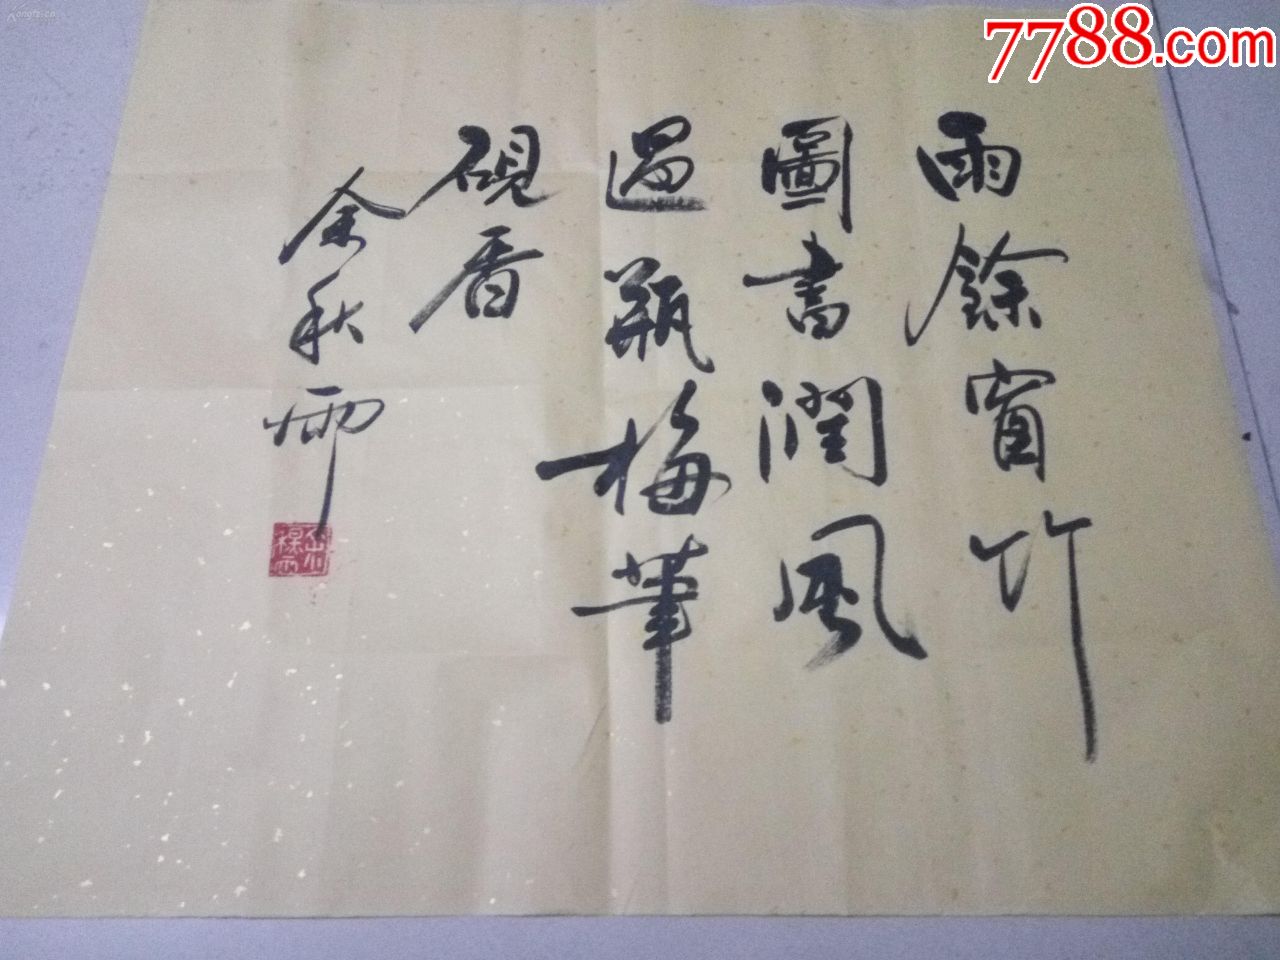 7788.com
雨餘窗竹
圖書潤風
過瓶梅筆
硯香
余秋雨